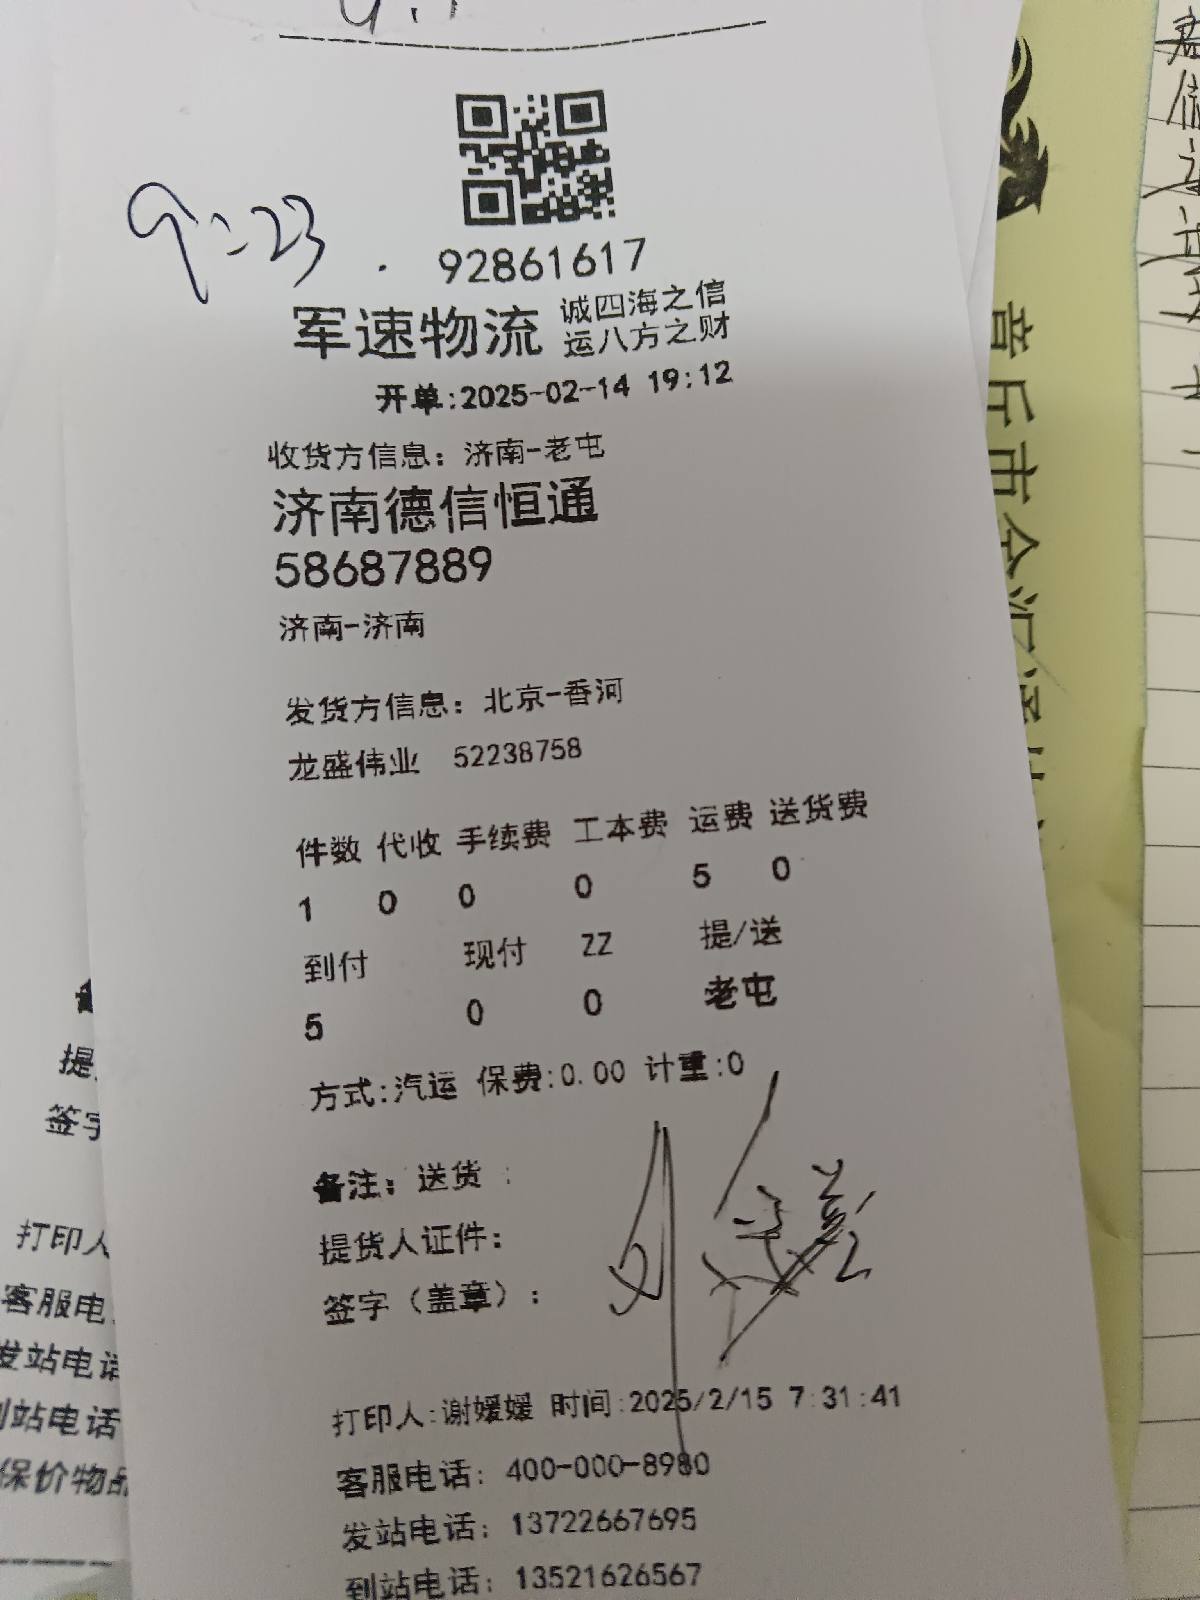 9:23
92861617
军速物流 诚四海之信
运八方之财
开单:2025-02-14 19:12
收货方信息：济南-老屯
济南德信恒通
58687889
济南-济南
发货方信息：北京-香河
龙盛伟业 52238758
件数 代收 手续费 工本费 运费 送货费
1 0 0 0 5 0
到付 现付 ZZ 提/送
5 0 0 老屯
方式:汽运 保费:0.00 计重:0
备注：送货 :
提货人证件：
签字（盖章）：
打印人:谢媛媛 时间:2025/2/15 7:31:41
客服电话：400-000-8980
发站电话：13722667695
到站电话：13521626567
提
签字
打印人
客服电
发站电话
到站电话
保价物品